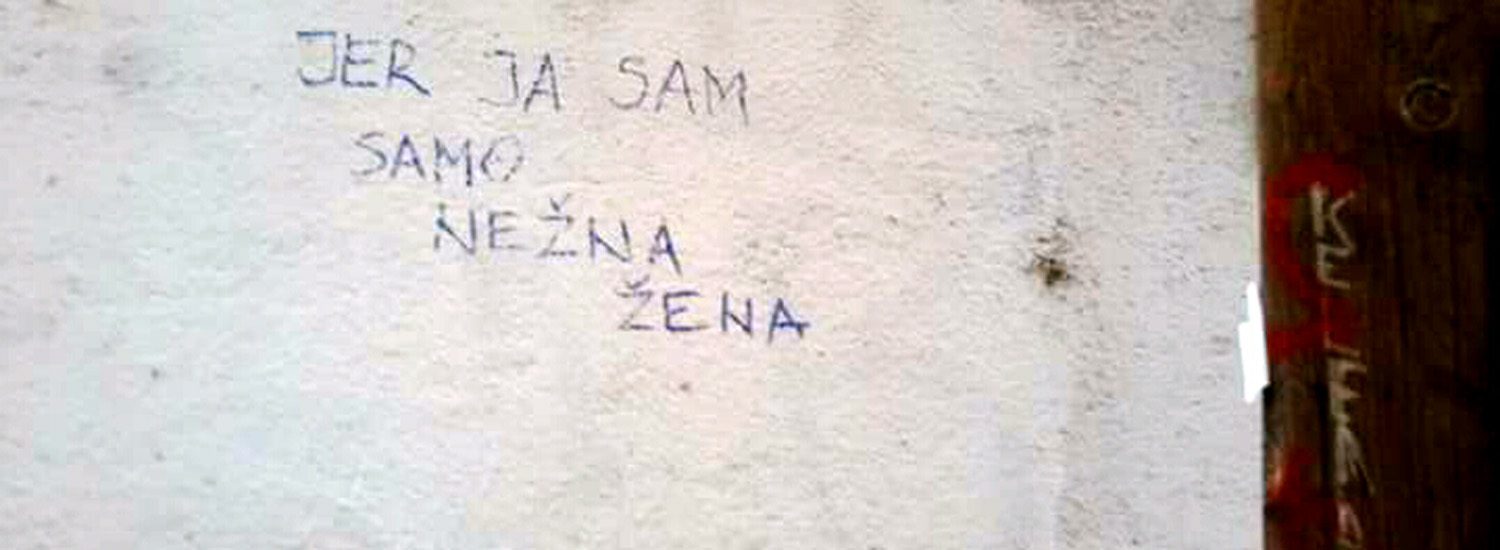 JER JA SAM
SAMO
NEŽNA
ŽENA